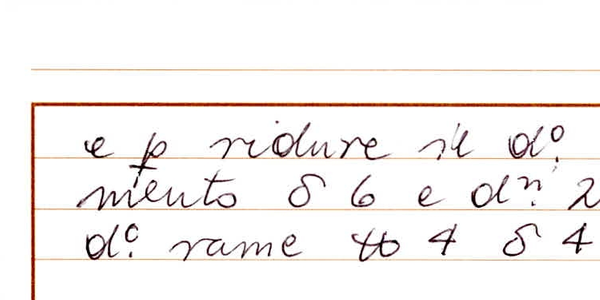 e p ridure il do:
mento δ 6 e dn: 2
do: rame 4 δ 4